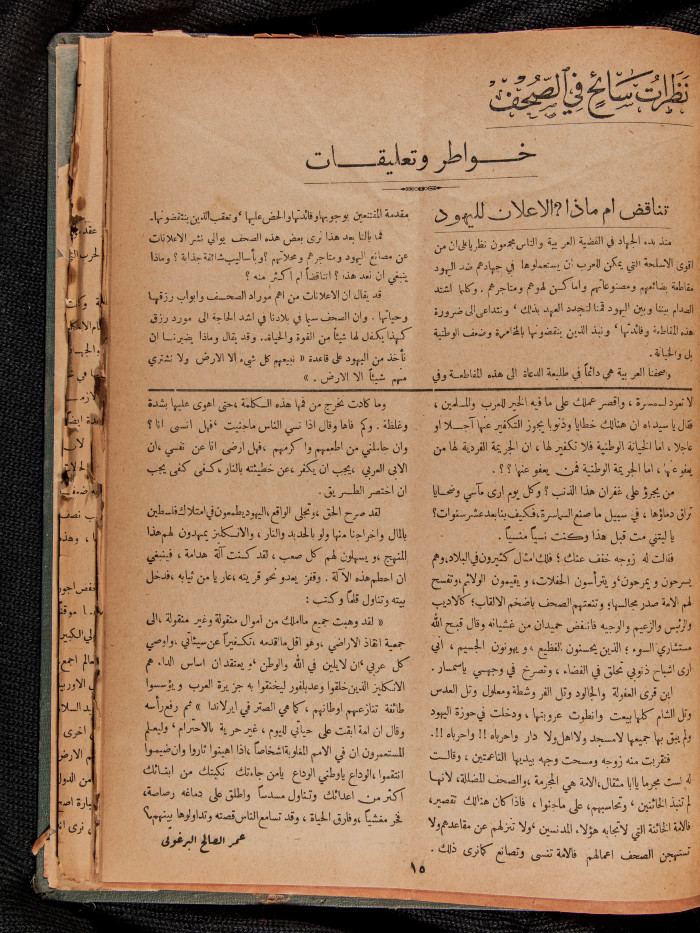 نظرات سائح في الصحف
خواطر وتعليقات
تناقض ام ماذا؟ الاعلان لليهود
منذ بدء الجهاد في القضية العربية والناس مجمعون نظرياً على ان من
اقوى الاسلحة التي يمكن للعرب ان يستعملوها في جهادهم ضد اليهود
مقاطعة بضائعهم ومصنوعاتهم واماكن لهوهم ومتاجرهم. وكلما اشتد
الصدام بيننا وبين اليهود قمنا لنجدد العهد بذلك، ونتداعى الى ضرورة
هذه المقاطعة وفائدتها، ونبذ الذين ينقضونها بالمخامرة وضعف الوطنية
بل والخيانة.
وصحفنا العربية هي دائماً في طليعة الدعاة الى هذه المقاطعة وفي
مقدمة المقتنعين بوجوبها وفائدتها والحض عليها، وتعقب الذين ينتقضونها.
فما بالنا بعد هذا نرى بعض هذه الصحف يوالي نشر الاعلانات
عن مصانع اليهود ومتاجرهم ومحلاتهم؟ وبأساليب شائقة جذابة؟ وماذا
ينبغي ان نعد هذا؟ اتناقضاً ام اكثر منه؟
قد يقال ان الاعلانات من اهم موراد الصحف وابواب رزقها
وحياتها. وان الصحف سيما في بلادنا في اشد الحاجة الى مورد رزق
كهذا يكفل لها شيئاً من القوة والحياة. وقد يقال وماذا يضيرنا ان
نأخذ من اليهود على قاعدة « نبيعهم كل شيء الا الارض ولا نشتري
منهم شيئاً الا الارض. »
لا تعود لسمسرة، واقصر عملك على ما فيه الخير للعرب والمسلمين،
فقال يا سيداه ان هنالك خطايا وذنوبا يجوز التكفير عنها آجلا او
عاجلا، اما الخيانة الوطنية فلا تكفير لها، ان الجريمة الفردية لها من
يعفو عنها، اما الجريمة الوطنية فمن يعفو عنها؟؟.
من يجرؤ على غفران هذا الذنب؟ وكل يوم ارى مآسي وضحايا
تراق دماؤها، في سبيل ما صنع السماسرة، فكيف بنا بعد عشر سنوات؟
يا ليتني مت قبل هذا وكنت نسياً منسياً.
فقالت له زوجه خفف عنك؛ فلك امثال كثيرون في البلاد، وهم
يسرحون ويمرحون، ويترأسون الحفلات، ويقيمون الولائم، وتفسح
لهم الامة صدر مجالسها، وتنعتهم الصحف بأضخم الالقاب؛ كالاديب
والرئيس والزعيم والوجيه فانتفض حميدان من غشيانه وقال قبح الله
مستشاري السوء؛ الذين يحسنون الفظيع، ويهونون الجسيم، انى
ارى اشباح ذنوبي تحلق في الفضاء، وتصرخ في وجهي باسمار.
اين قرى العفولة والجالود وتل الفر وشطة ومعلول وتل العدس
وتل الشام كلها بيعت وانطوت عروبتها، ودخلت في حوزة اليهود
ولم يبق بها جميعها لا مسجد ولا اهل ولا دار واحرباه!! واحرباه!!.
فتقربت منه زوجه ومسحت وجهه بيديها الناعمتين، وقالت
له لست مجرما يابا مثقال، الامة هي المجرمة، والصحف المضللة، لانها
لم تنبذ الخائنين، وتحاسبهم، على ما جنوا، فاذا كان هنالك تقصير،
فالامة الخائنة التي لا تجابه هؤلاء المدنسين، ولا تنزلهم عن مقاعدهم ولا
تستهجن الصحف اعمالهم فالامة تنسى وتصانع كما نرى ذلك.
وما كادت تخرج من فمها هذه الكلمة، حتى اهوى عليها بشدة
وغلظة. وكم فاها وقال اذا نسي الناس ما جنيت، فهل انسى انا؟
وان جاملني من اطعمهم واكرمهم، فهل ارضى انا عن نفسي، ان
الابي العربي، يجب ان يكفر، عن خطيئته بالنار، كفى كفى يجب
ان اختصر الطريق.
لقد صرح الحق، وتجلى الواقع، اليهود يطمعون في امتلاك فلسطين
بالمال واخراجنا منها ولو بالحديد والنار، والانكليز يمهدون لهم هذا
المنهج، ويسهلون لهم كل صعب، لقد كنت آلة هدامة، فينبغي
ان احطم هذه الآلة. وقفز يعدو نحو قرينته، عاريا من ثيابه، فدخل
بيته وتناول قلماً وكتب:
« لقد وهبت جميع ما املك من اموال منقولة وغير منقولة، الى
جمعية انقاذ الاراضي، وهو اقل ما اقدمه، تكفيراً عن سيئاتي، واوصي
كل عربي، ان لا يلين في الله والوطن، ويعتقد ان اساس الداء هم
الانكليز الذين خلقوا وعد بلفور ليخنقوا به جزيرة العرب ويؤسسوا
طائفة تنازعهم اوطانهم، كما هي الصتر في ايرلاندا » ثم رفع رأسه
وقال ان امة ابقت على حياتي لليوم، غير حرية بالاحترام، وليعلم
المستعمرون ان في الامم المغلوبة اشخاصاً، اذا اهينوا ثاروا وان ضيموا
انتقموا، الوداع يا وطني الوداع يا من جاءتك نكبتك من ابنائك
اكثر من اعدائك وتناول مسدساً واطلق على دماغه رصاصة،
فخر مغشياً، وفارق الحياة، وقد تسامع الناس قصته وتداولوها بينهم،؟
عمر الصالح البرغوثي
١٥